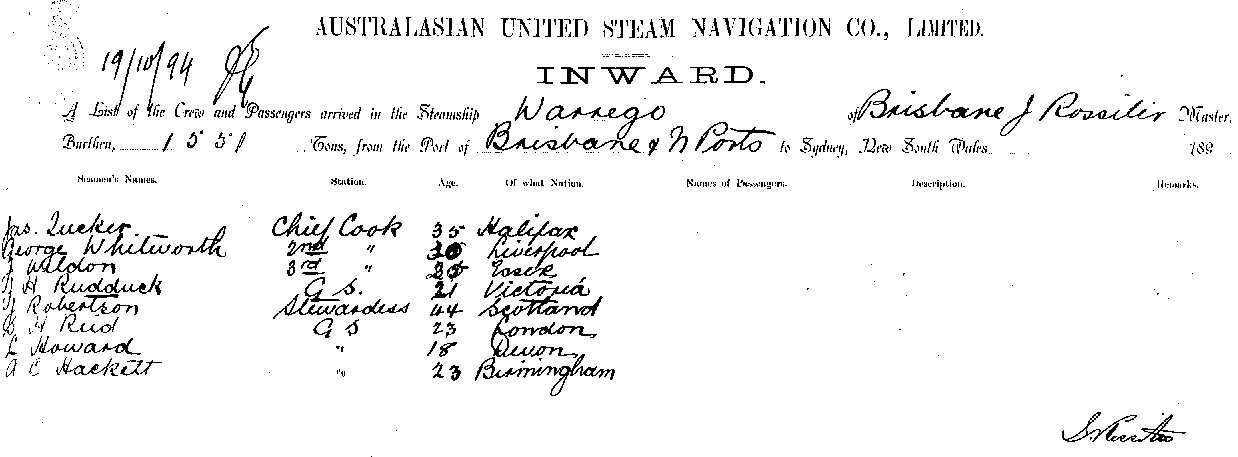 AUSTRALASIAN UNITED STEAM NAVIGATION CO., LIMITED.
19/10/94
INWARD.
A List of the Crew and Passengers arrived in the Steamship Warrego of Brisbane J Rossiter Master,
Burthen, 1551 Tons, from the Port of Brisbane & N Ports to Sydney, New South Wales 189
Seamen's Names. Station. Age. Of what Nation. Names of Passengers. Description. Remarks.
Jas. Tucker Chief Cook 35 Halifax
George Whitworth 2nd " Liverpool
J Weldon 3rd " Essex
J H Rudduck G S. 21 Victoria
J Robertson Stewardess 44 Scotland
H Reid G S 23 London
L Howard " 18 Devon
A E Hackett " 23 Birmingham
J Rossiter